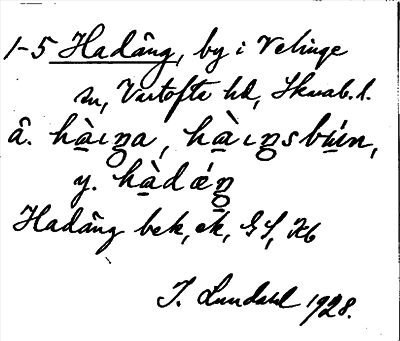 1-5 Hadäng, by i Velinge
sn, Vartofta hd, Skarab. l.
ä. hàıŋa, hàıŋsbýın,
y. hàdǽŋ
Hadäng bek, ek, GS, Kb
I. Lundahl 1928.